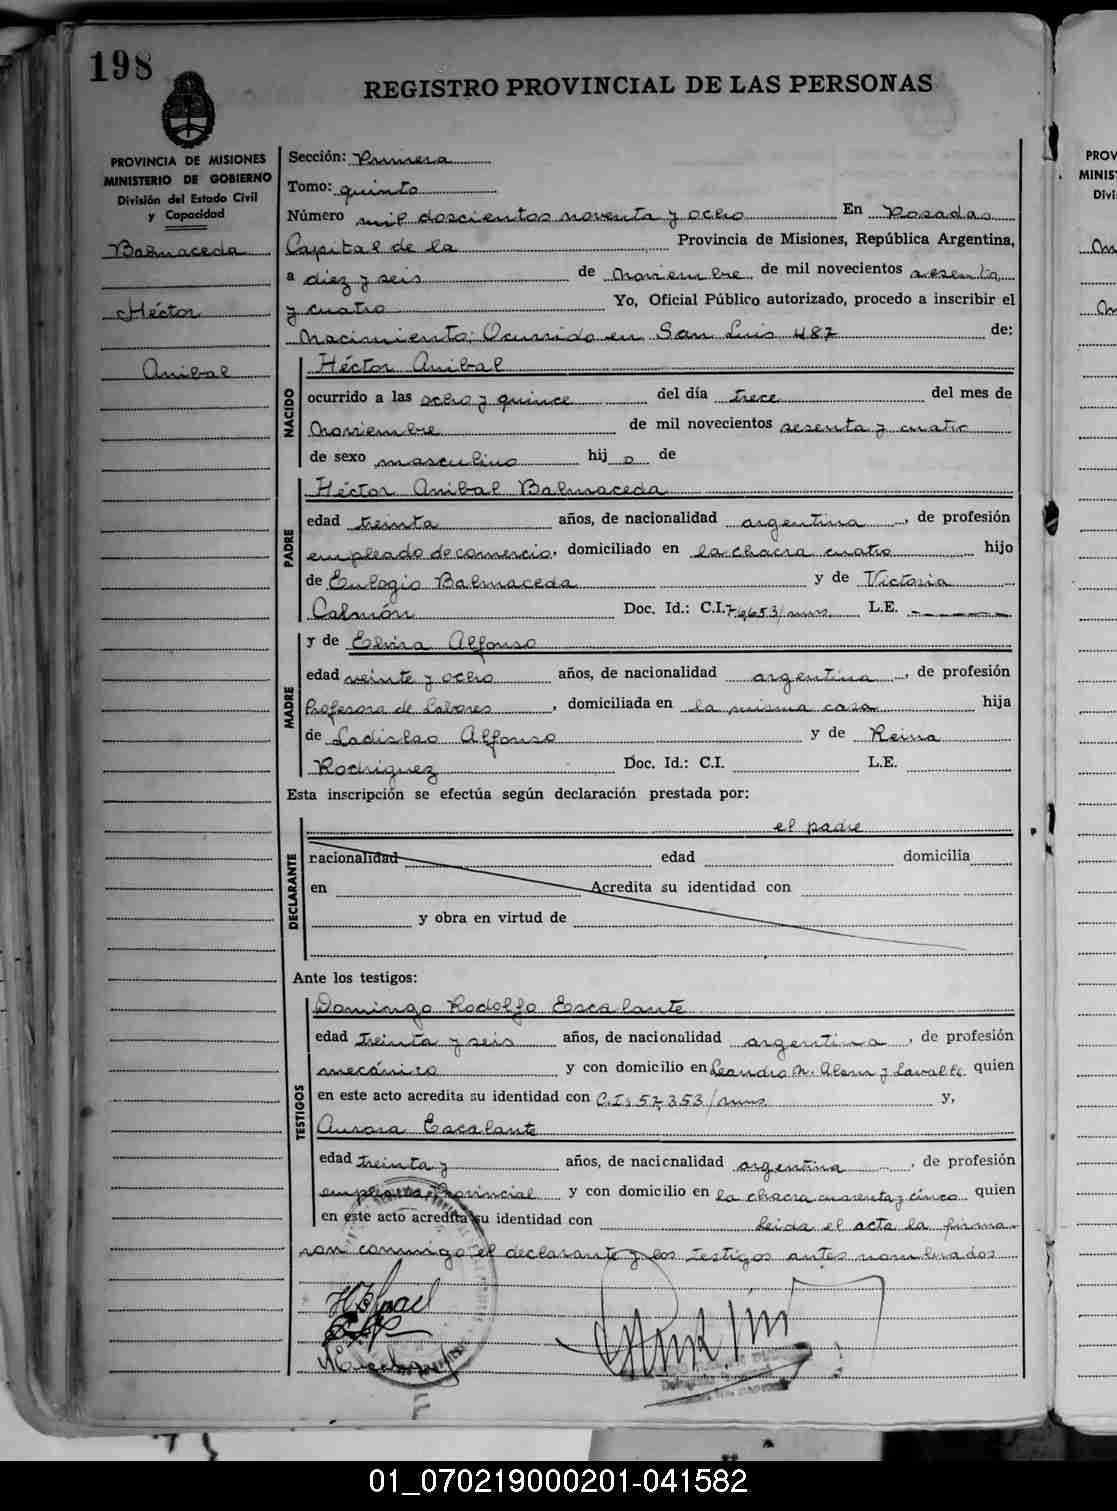 198
REGISTRO PROVINCIAL DE LAS PERSONAS
PROVINCIA DE MISIONES
MINISTERIO DE GOBIERNO
División del Estado Civil
y Capacidad
Balmaceda
Héctor
Anibal
Sección: Primera
Tomo: quinto
Número mil doscientos noventa y ocho En Posadas
Capital de la Provincia de Misiones, República Argentina,
a diez y seis de Noviembre de mil novecientos sesenta
y cuatro Yo, Oficial Público autorizado, procedo a inscribir el
Nacimiento; Ocurrido en San Luis 487 de:
NACIDO
Héctor Anibal
ocurrido a las ocho y quince del día trece del mes de
Noviembre de mil novecientos sesenta y cuatro
de sexo masculino hij o de
PADRE
Héctor Anibal Balmaceda
edad treinta años, de nacionalidad argentina, de profesión
empleado de comercio, domiciliado en la chacra cuatro hijo
de Eulogio Balmaceda y de Victoria
Calmón Doc. Id.: C.I. L.E.
MADRE
y de Elvira Alfonso
edad veinte y ocho años, de nacionalidad argentina, de profesión
Profesora de Labores, domiciliada en la misma casa hija
de Ladislao Alfonso y de Reina
Rodriguez Doc. Id.: C.I. L.E.
Esta inscripción se efectúa según declaración prestada por:
DECLARANTE
el padre
nacionalidad edad domicilia
en Acredita su identidad con
y obra en virtud de
Ante los testigos:
TESTIGOS
Domingo Rodolfo Escalante
edad treinta y seis años, de nacionalidad argentina, de profesión
mecánico y con domicilio en Leandro N. Alem y Lavalle quien
en este acto acredita su identidad con C.I. 57,353/mns y,
Aurora Escalante
edad treinta y años, de nacionalidad argentina, de profesión
empleada Provincial y con domicilio en la chacra cuarenta y cinco quien
en este acto acredita su identidad con Leida el acta la firma-
ron conmigo el declarante y los testigos antes nombrados
PROV
MINIS
Divi
01_070219000201-041582